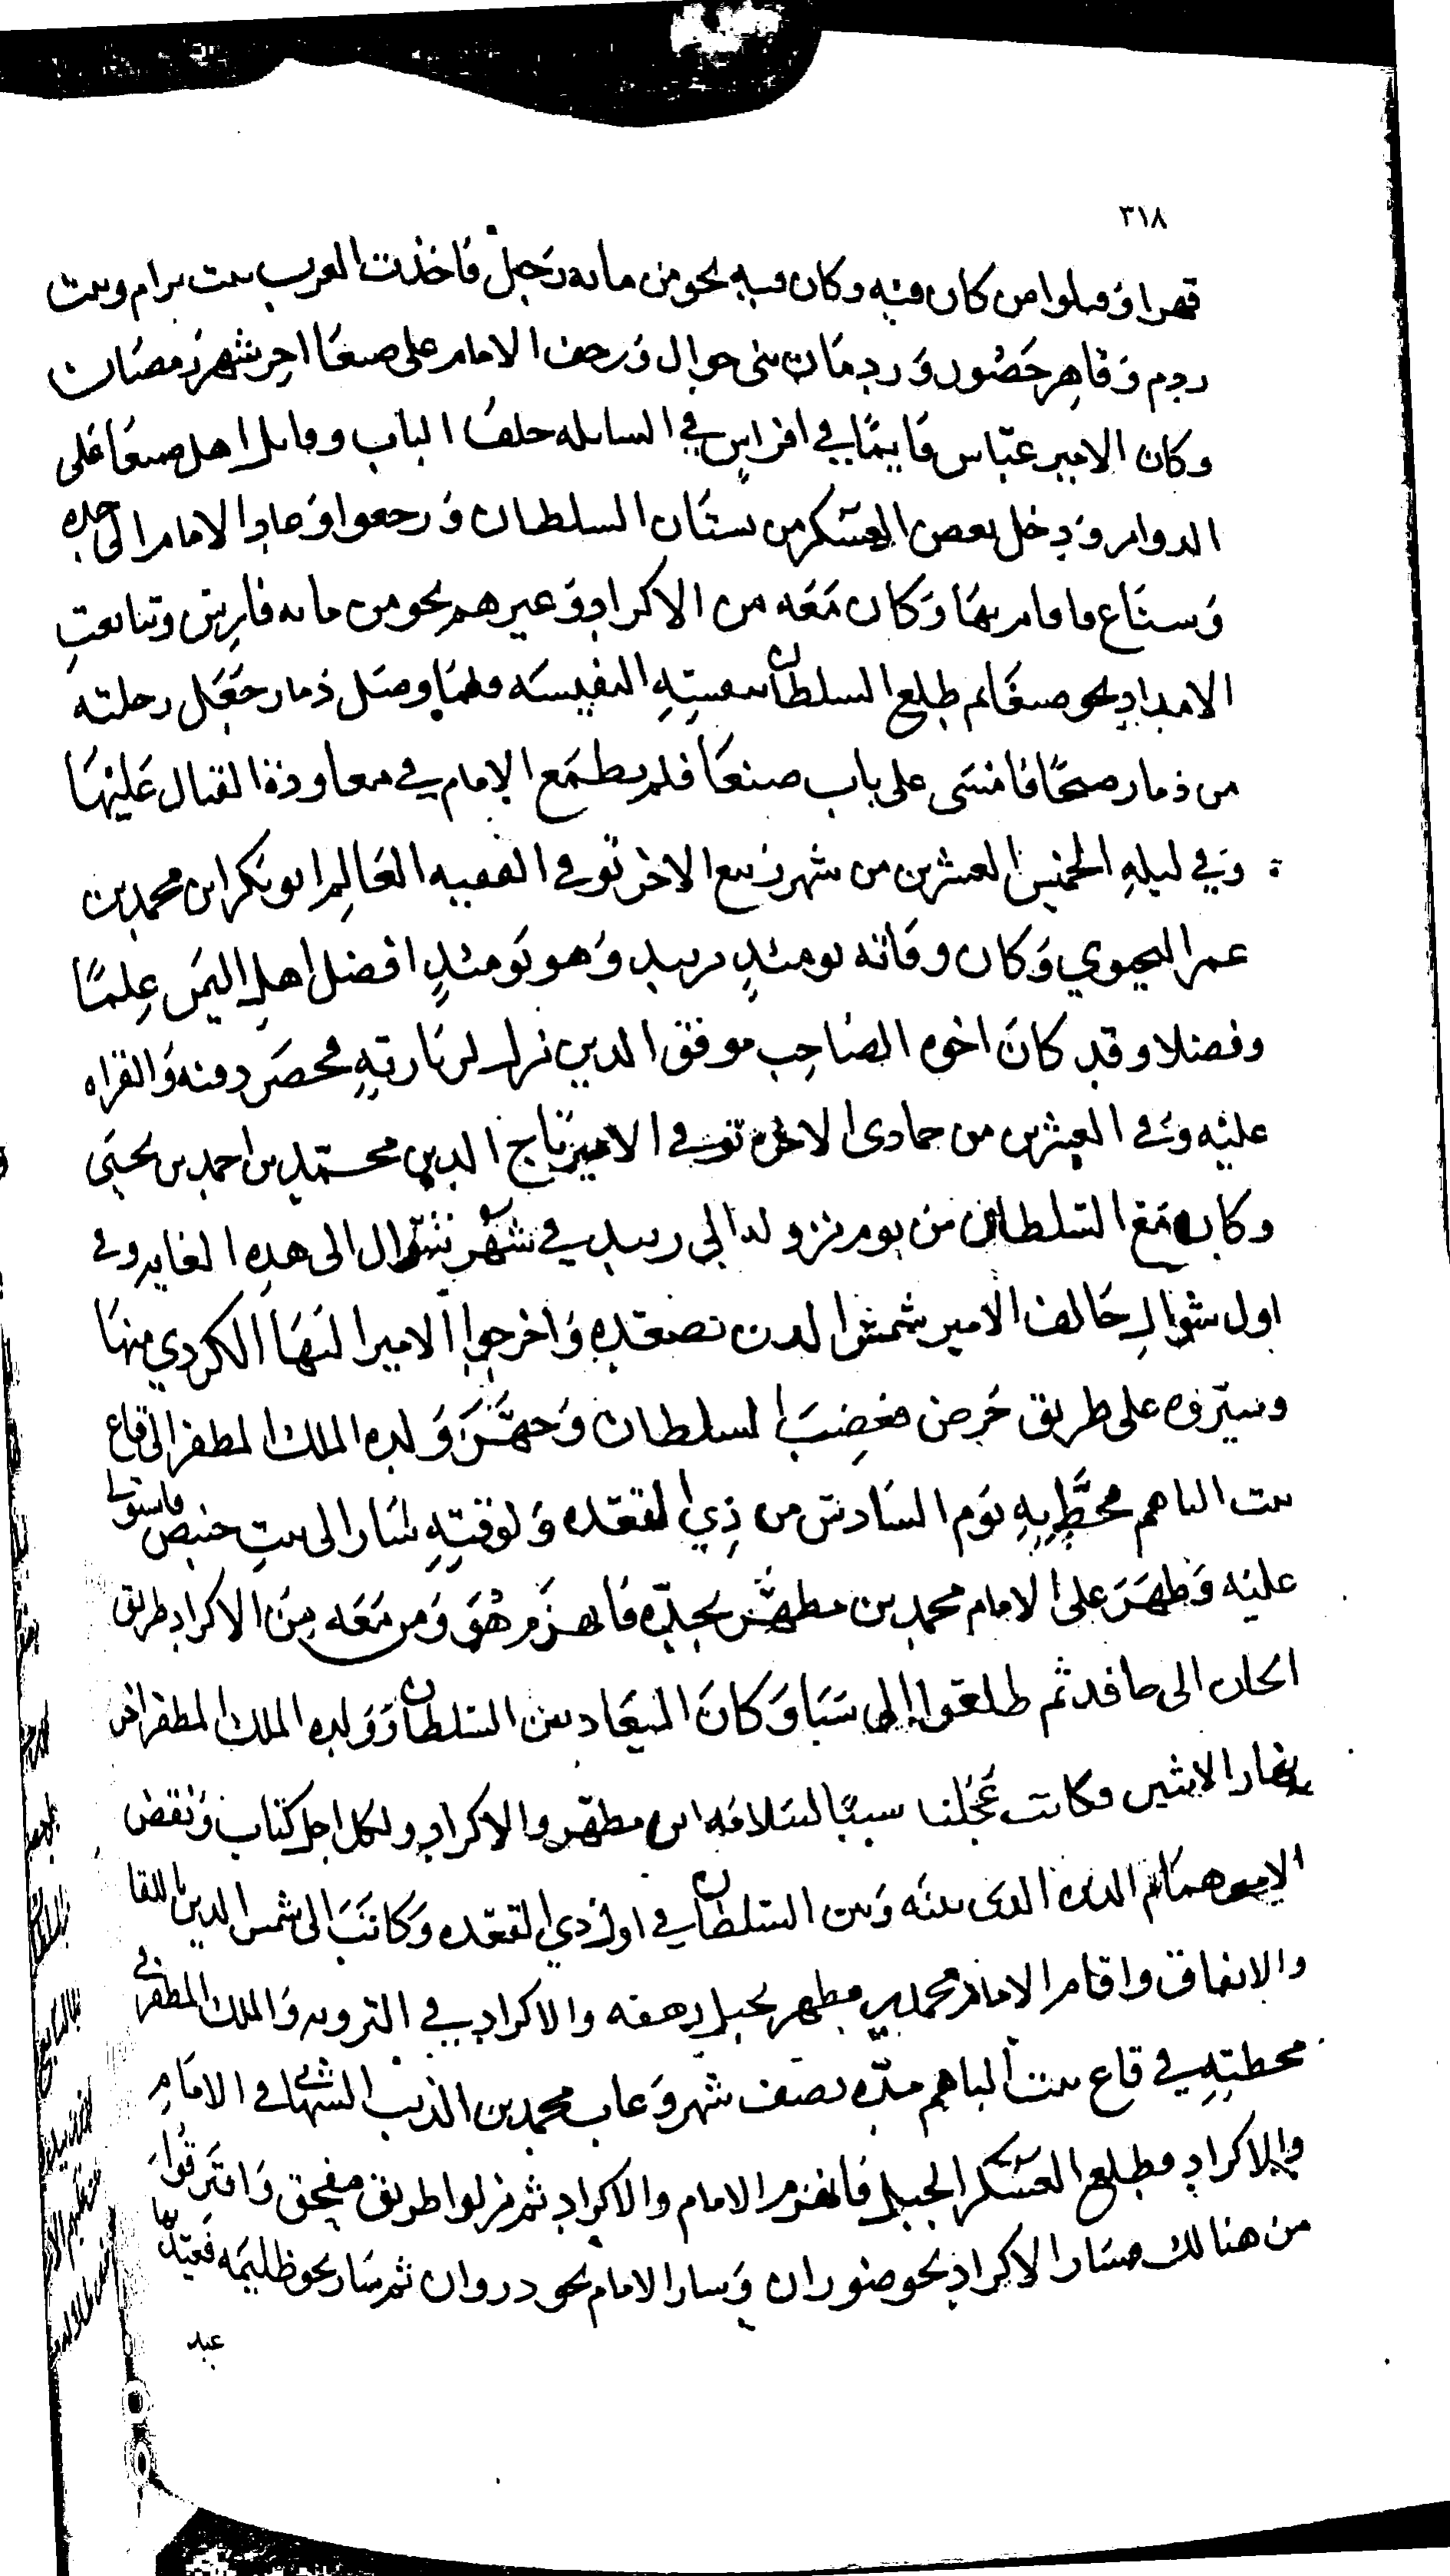 ٣١٨
قهرا وقتلوا من كان فيه وكان فيه نحو من مايه رجل فاخذت العرب بيت برام وبيت
ردم وقاهر حضور وردمان بني حوال وزحف الامام على صنعا اخر شهر رمضان
وكان الامير عباس قايما في افراس في السايله خلف الباب وقاتل اهل صنعا على
الدوابر ودخل بعض العسكر من بستان السلطان ورجعوا وعاد الامام الى حده
وسناع فاقام بها وكان معه من الاكراد وغيرهم نحو من مايه فارس وتتابعت
الامداد نحو صنعا ثم طلع السلطان بنفسه النفيسه فلما وصل ذمار جعل رحلته
من ذمار صبحا فامسى على باب صنعا فلم يطمع الامام في معاودة القتال عليها
وفي ليله الخميس العشرين من شهر ربيع الاخر توفي الفقيه العالم ابو بكر ابن محمد بن
عمر اليحيوي وكان وفاته يومئذ بزبيد وهو يومئذ افضل اهل اليمن علما
وفضلا وقد كان اخوه الصاحب موفق الدين نزل لزيارته فحضر دفنه والقراه
عليه وفي العشرين من جمادى الاخرى توفي الامير تاج الدين محمد بن احمد بن يحيى
وكان مع السلطان من يوم نزوله الى زبيد في شهر شوال الى هذه الغايه وفي
اول شوال خالف الامير شمس الدين بصعده واخرجوا الامير البها الكردي منها
وسيروه على طريق حرض فغضب السلطان وجهز ولده الملك المظفر الى قاع
بيت الناهم فحط به يوم السادس من ذي القعده ولوقته سار الى بيت حنبص فاستولى
عليه وظهر على الامام محمد بن مطهر بحده فانهزم هو ومن معه من الاكراد طريق
الى حافد ثم طلعوا الى سبا وكان الميعاد بين السلطان وولده الملك المظفر اخر
نهار الاثنين فكانت عجلنا سببا لسلامه ابن مطهر والاكراد ولكل اجل كتاب ونقض
الامير همام الدين الذي بينه وبين السلطان في اول ذي القعده وكاتب الى شمس الدين باللقا
والاتفاق واقام الامام محمد بن مطهر بجبل رهقه والاكراد في الترويه والملك المظفر في
محطته في قاع بيت الناهم مده نصف شهر وعاب محمد بن الذيب الشهابي في الامام
والاكراد فطلع العسكر الجبل فانهزم الامام والاكراد ثم نزلوا طريق مفحق وافترقوا
من هنالك فسار الاكراد نحو ضوران وسار الامام نحو دروان ثم سار نحو ظليمه فعيد بها
عيد